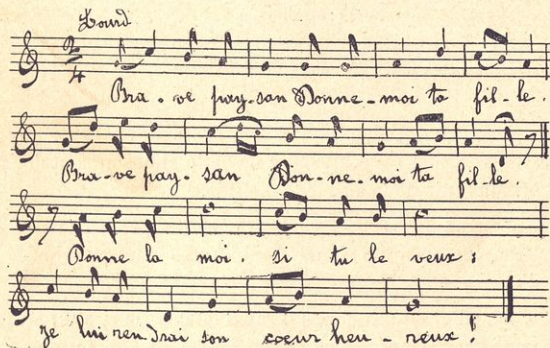 Lourd
2/4
Bra - ve pay - san Donne - moi ta fil - le.
Bra - ve pay - san Don - ne - moi ta fil - le.
Donne la moi. si tu le veux :
Je lui rendrai son coeur heu - reux !